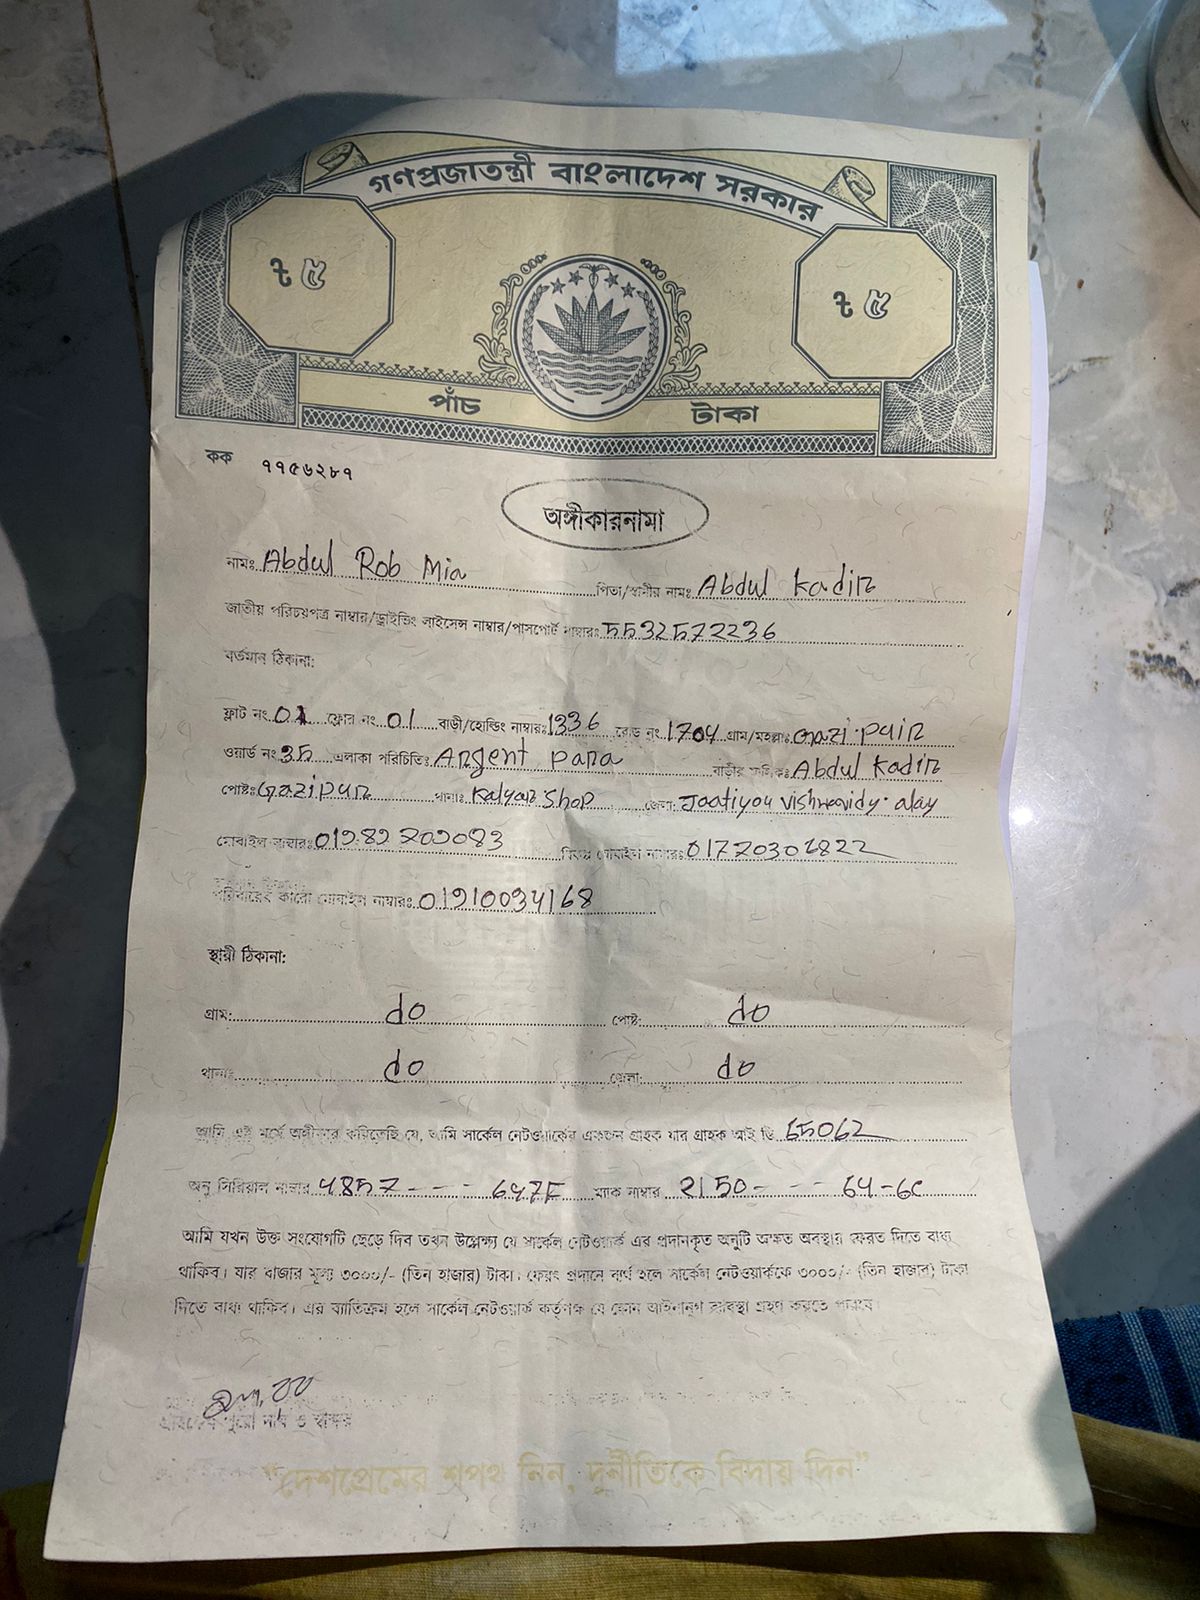 গণপ্রজাতন্ত্রী বাংলাদেশ সরকার
৳ ৫ ৳ ৫
পাঁচ টাকা
কক ৭৭৫৬২৮৭
অঙ্গীকারনামা
নামঃ Abdul Rob Mia পিতা/স্বামীর নামঃ Abdul Kadir
জাতীয় পরিচয়পত্র নাম্বার/ড্রাইভিং লাইসেন্স নাম্বার/পাসপোর্ট নাম্বারঃ 5532572236
বর্তমান ঠিকানা:
ফ্লাট নং 01 ফ্লোর নং 01 বাড়ী/হোল্ডিং নাম্বারঃ 1336 রোড নং 1704 গ্রাম/মহল্লাঃ Gazi pur
ওয়ার্ড নং 35 এলাকা পরিচিতিঃ Argent para বাড়ীর মালিকঃ Abdul Kadir
পোষ্টঃ Gazipur থানাঃ Kalyar Shop জেলা: Jaatiyou
মোবাইল নাম্বারঃ বিকল্প মোবাইল নাম্বারঃ
পরিবারের কারো মোবাইল নাম্বারঃ 01910034168
স্থায়ী ঠিকানা:
গ্রাম: do পোষ্ট: do
থানাঃ do জেলা: do
আমি এই মর্মে অঙ্গীকার করিতেছি যে, আমি সার্কেল নেটওয়ার্কের একজন গ্রাহক যার গ্রাহক আই ডি 55062
অনু সিরিয়াল নাম্বার 4857 - - - 647F ম্যাক নাম্বার 2150 - - - 64-6C
আমি যখন উক্ত সংযোগটি ছেড়ে দিব তখন উল্লেক্ষ্য যে সার্কেল নেটওয়ার্ক এর প্রদানকৃত অনুটি অক্ষত অবস্থায় ফেরত দিতে বাধ্য
থাকিব। যার বাজার মূল্য ৩০০০/- (তিন হাজার) টাকা। ফেরৎ প্রদানে ব্যর্থ হলে সার্কেল নেটওয়ার্ককে ৩০০০/- (তিন হাজার) টাকা
দিতে বাধ্য থাকিব। এর ব্যতিক্রম হলে সার্কেল নেটওয়ার্ক কর্তৃপক্ষ যে কোন আইনানুগ ব্যবস্থা গ্রহণ করতে পারবে।
গ্রাহকের পুরো নাম ও স্বাক্ষর
“দেশপ্রেমের শপথ নিন, দুর্নীতিকে বিদায় দিন”